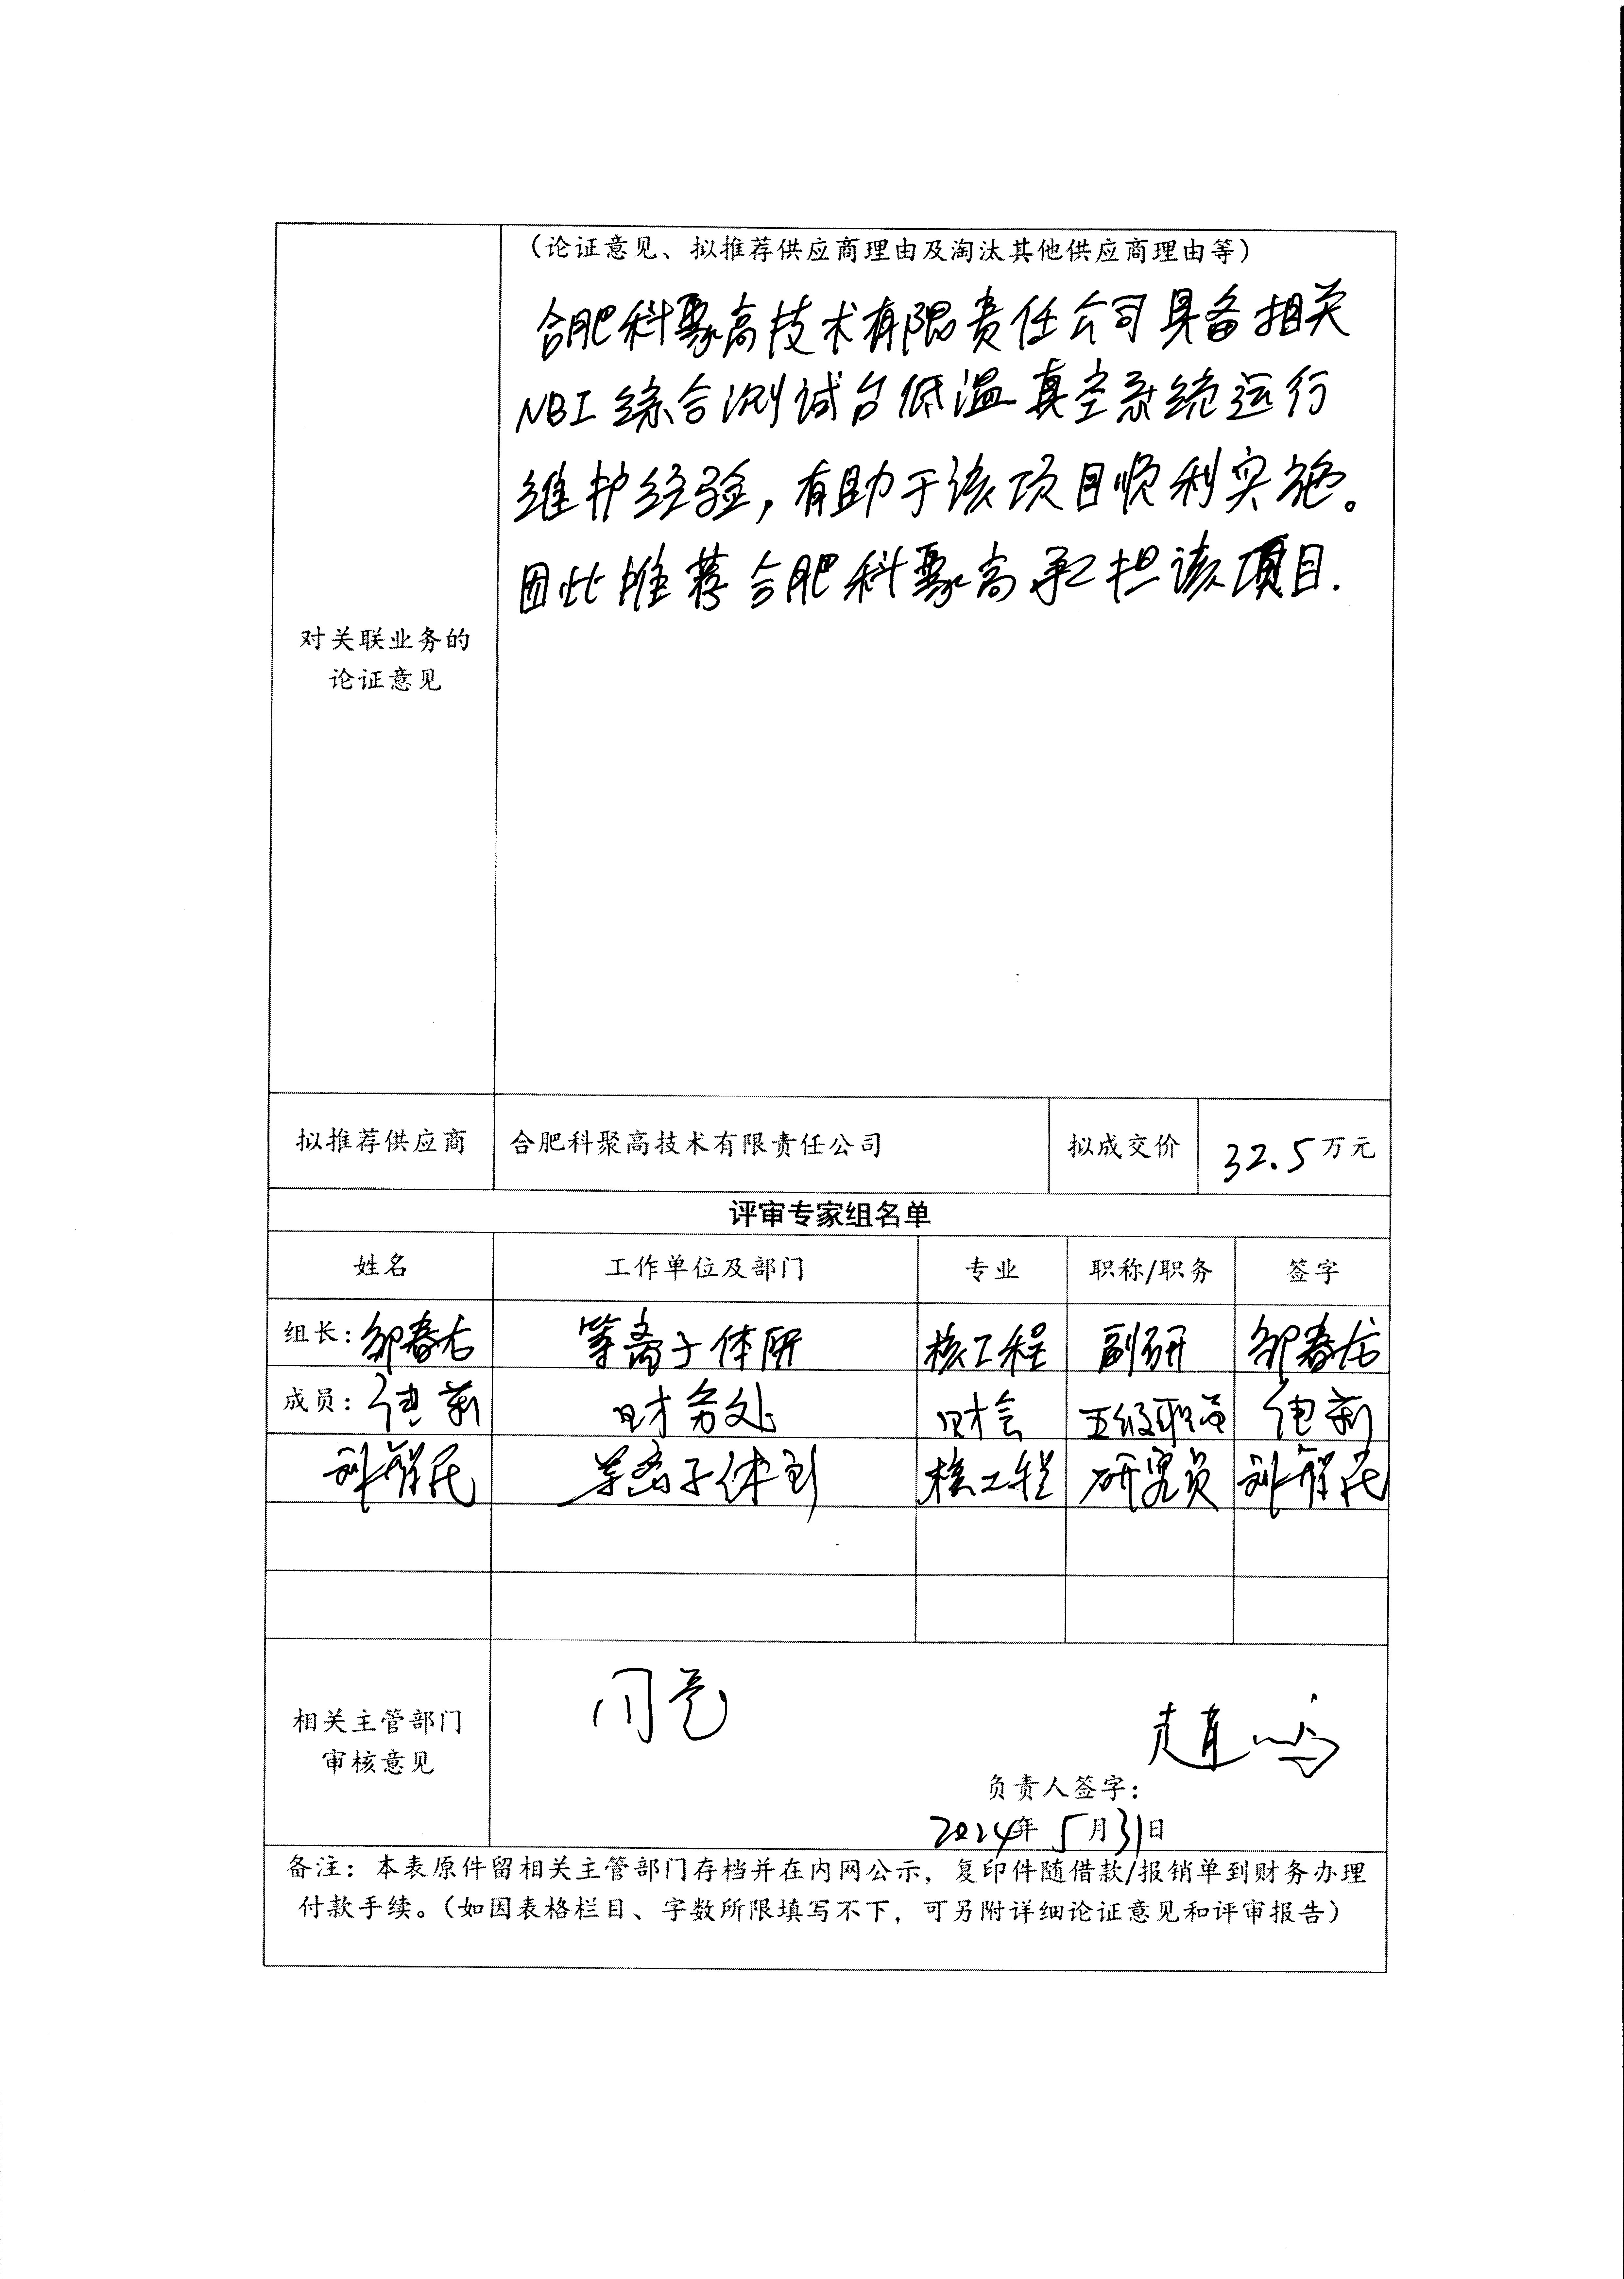 （论证意见、拟推荐供应商理由及淘汰其他供应商理由等）
合肥科聚高技术有限责任公司具备相关
NBI综合测试台低温真空系统运行
维护经验，有助于该项目顺利实施。
因此推荐合肥科聚高承担该项目.
对关联业务的
论证意见
拟推荐供应商 合肥科聚高技术有限责任公司 拟成交价 32.5万元
评审专家组名单
姓名 工作单位及部门 专业 职称/职务 签字
组长：邹春龙 等离子体所 核工程 副研 邹春龙
成员： 财务处 财会 五级职员
等离子体所 核工程 研究员
相关主管部门
审核意见
同意
负责人签字：
2024年5月31日
备注：本表原件留相关主管部门存档并在内网公示，复印件随借款/报销单到财务办理
付款手续。（如因表格栏目、字数所限填写不下，可另附详细论证意见和评审报告）